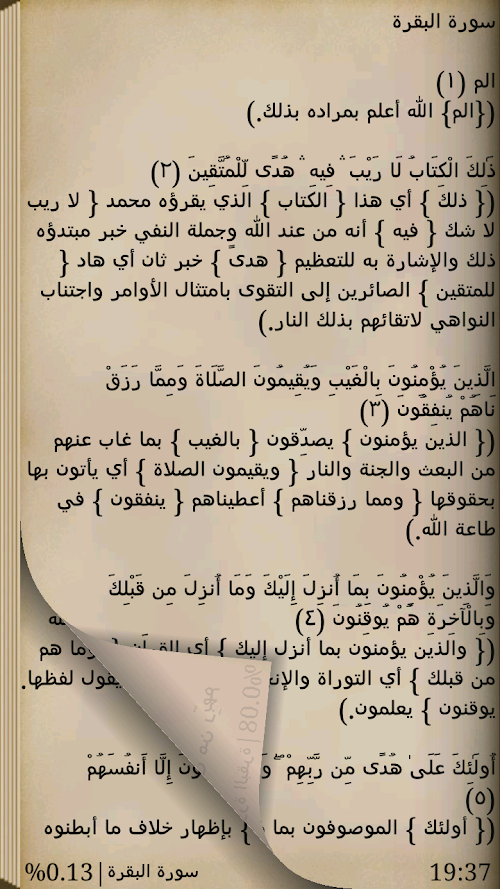 سورة البقرة
الم (١)
({الم} الله أعلم بمراده بذلك.)
ذَلِكَ الْكِتَابُ لَا رَيْبَ ۛ فِيهِ ۛ هُدًى لِّلْمُتَّقِينَ (٢)
({ ذلك } أي هذا { الكتاب } الذي يقرؤه محمد { لا ريب
لا شك { فيه } أنه من عند الله وجملة النفي خبر مبتدؤه
ذلك والإشارة به للتعظيم { هدىً } خبر ثان أي هاد {
للمتقين } الصائرين إلى التقوى بامتثال الأوامر واجتناب
النواهي لاتقائهم بذلك النار.)
الَّذِينَ يُؤْمِنُونَ بِالْغَيْبِ وَيُقِيمُونَ الصَّلَاةَ وَمِمَّا رَزَقْ
نَاهُمْ يُنفِقُونَ (٣)
({ الذين يؤمنون } يصدِّقون { بالغيب } بما غاب عنهم
من البعث والجنة والنار { ويقيمون الصلاة } أي يأتون بها
بحقوقها { ومما رزقناهم } أعطيناهم { ينفقون } في
طاعة الله.)
وَالَّذِينَ يُؤْمِنُونَ بِمَا أُنزِلَ إِلَيْكَ وَمَا أُنزِلَ مِن قَبْلِكَ
وَبِالْآخِرَةِ هُمْ يُوقِنُونَ (٤)
({ والذين يؤمنون بما أنزل إليك } أي القرآن {
من قبلك } أي التوراة
يوقنون } يعلمون.)
أُولَئِكَ عَلَى هُدًى مِّن رَّبِّهِمْ ۖ إِلَّا أَنفُسَهُمْ
(٥)
({ أولئك } الموصوفون بما } بإظهار خلاف ما أبطنوه
19:37
سورة البقرة|%0.13